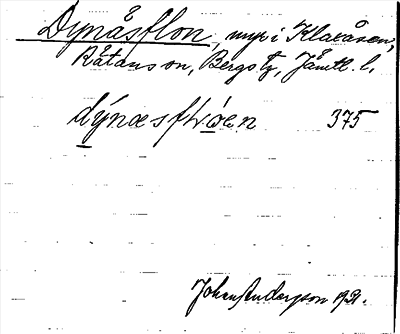 Dynåsflon, myr i Klaxåsen,
Rätans sn, Bergs tg, Jämtl. l.
dýnæsfɫóen 375
Johan Anderzson 1921.